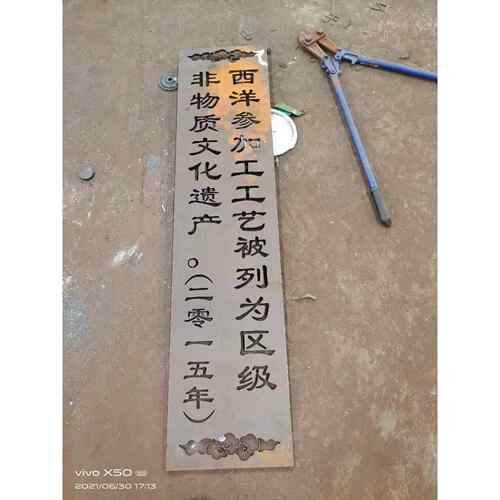 西洋参加工工艺被列为区级
非物质文化遗产。(二零一五年)
vivo X50
2021/06/30 17:13